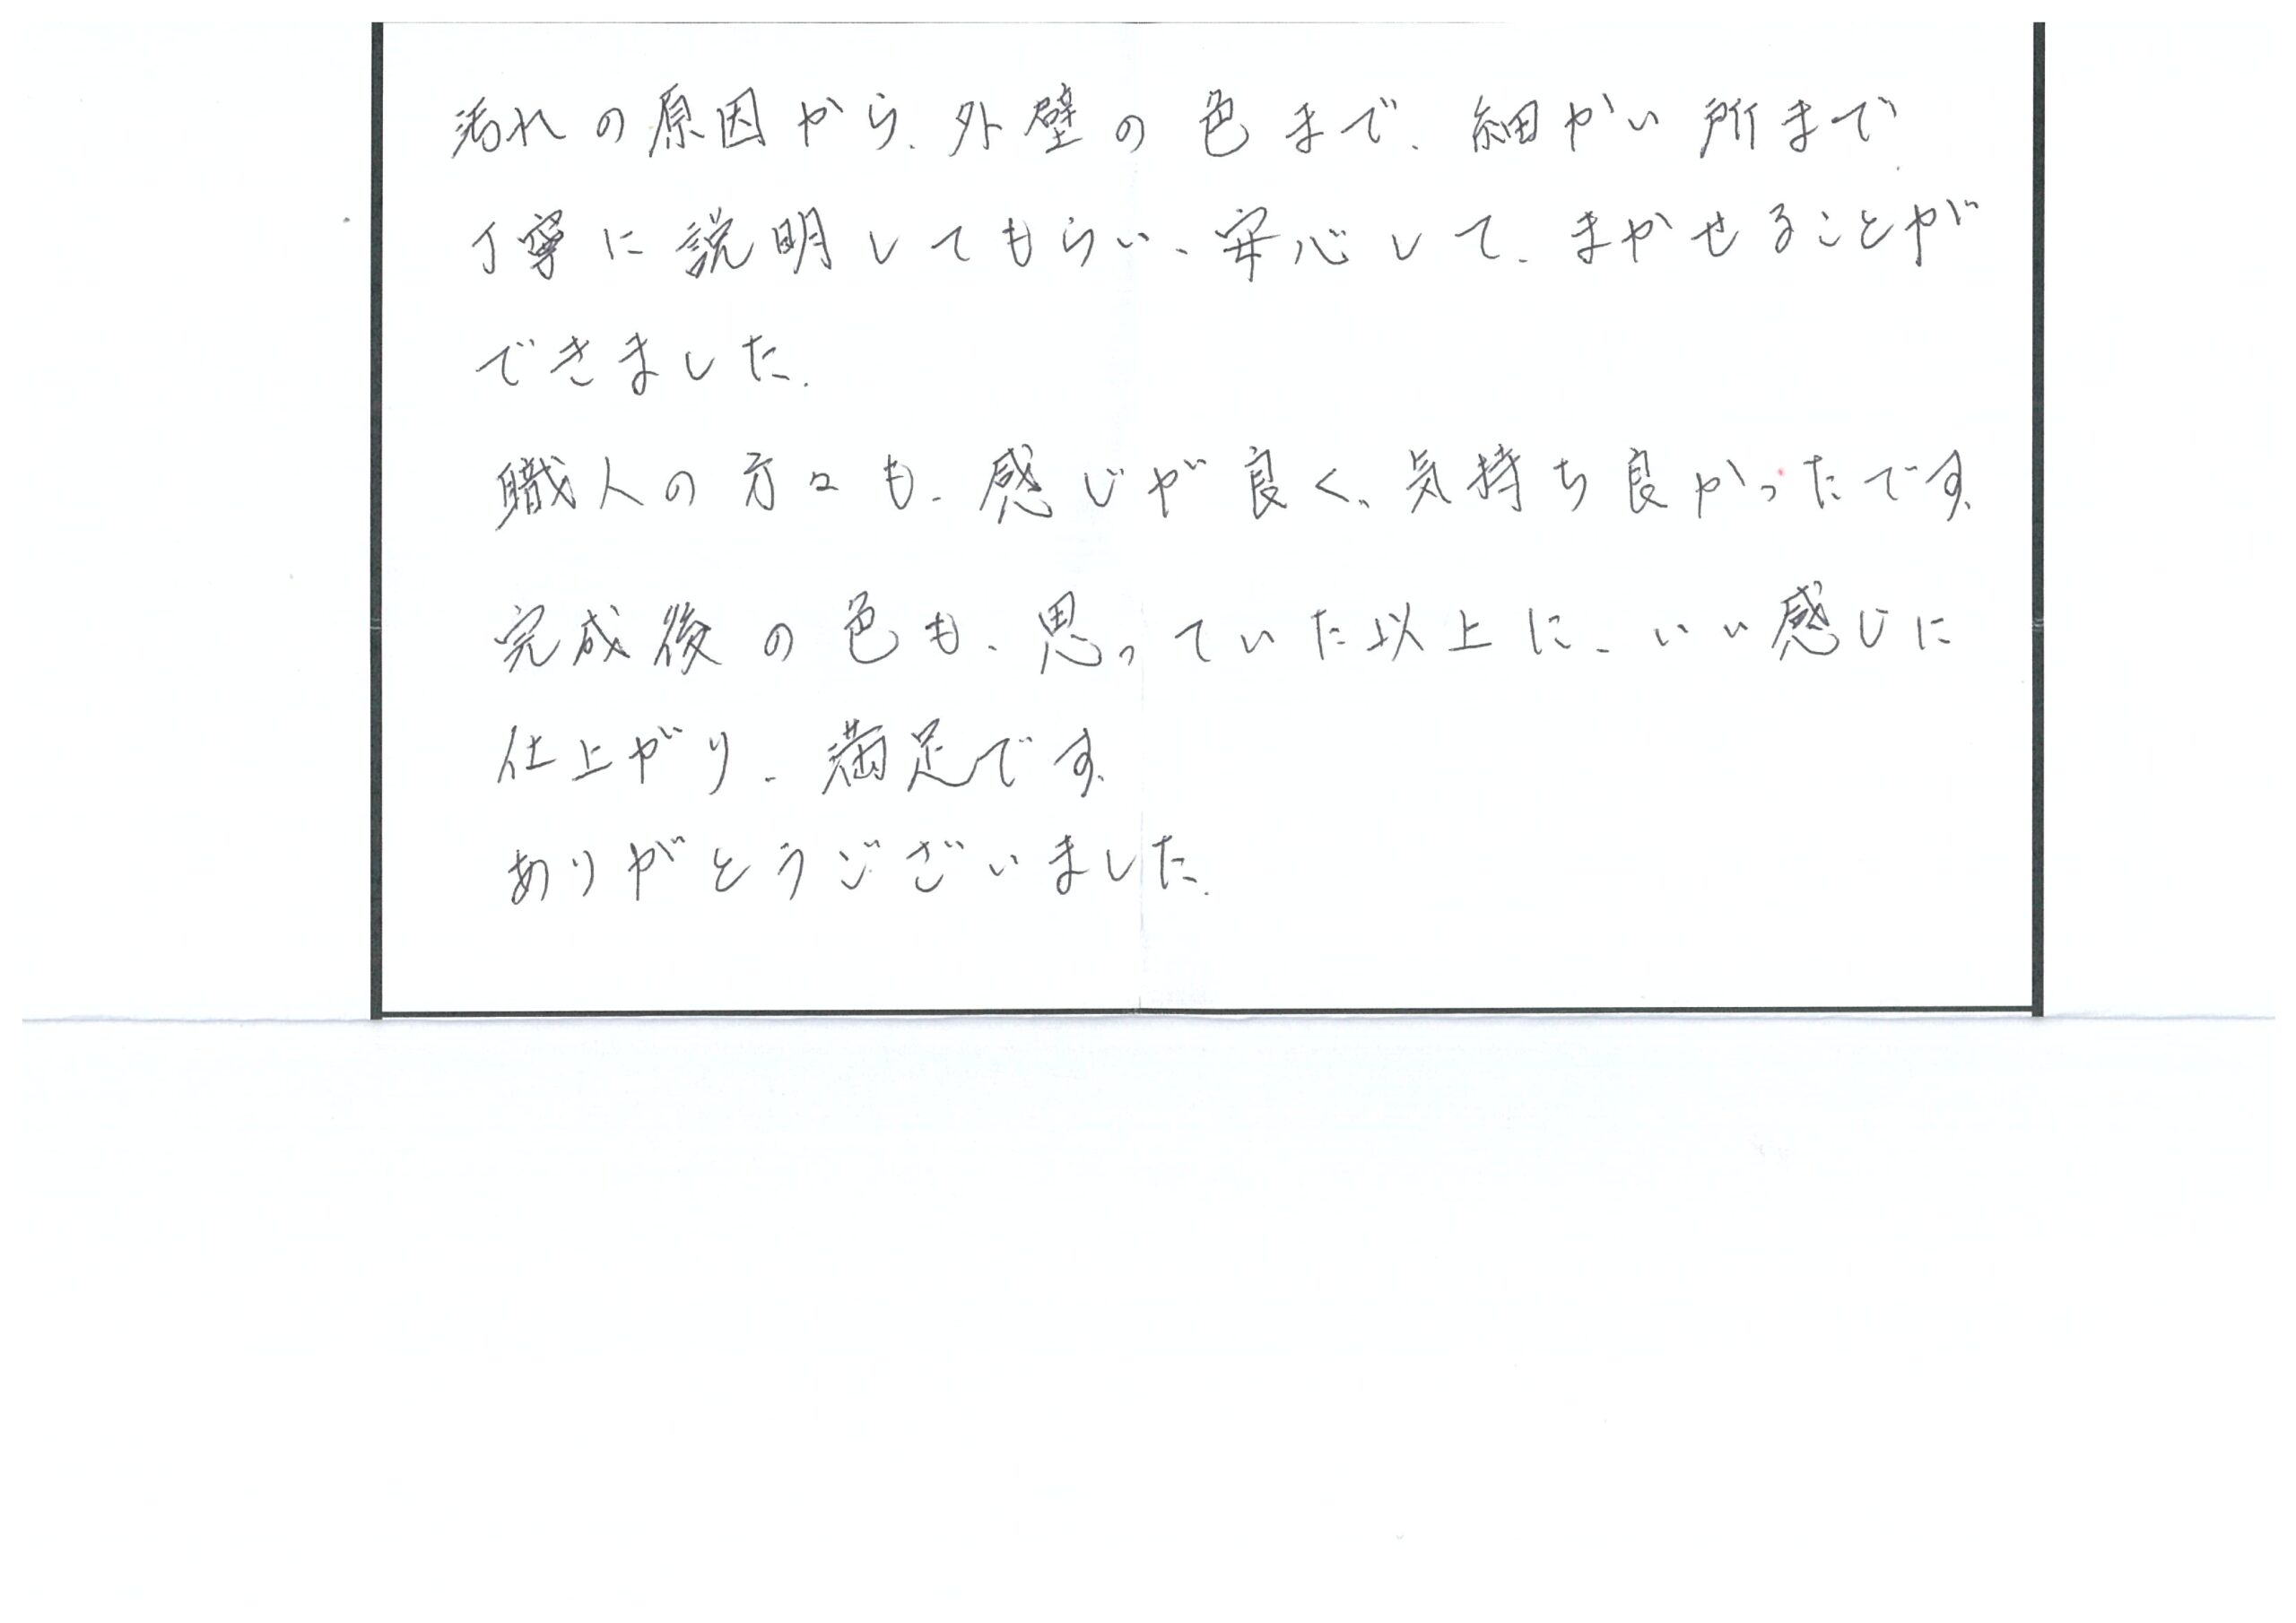 汚れの原因から、外壁の色まで、細かい所まで
丁寧に説明してもらい、安心して、まかせることが
できました。
職人の方々も、感じが良く、気持ち良かったです。
完成後の色も、思っていた以上に、いい感じに
仕上がり、満足です。
ありがとうございました。